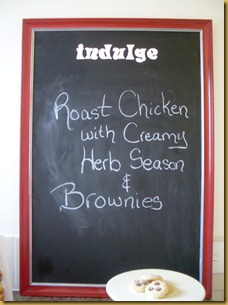 indulge
Roast Chicken
with Creamy
Herb Season
&
Brownies